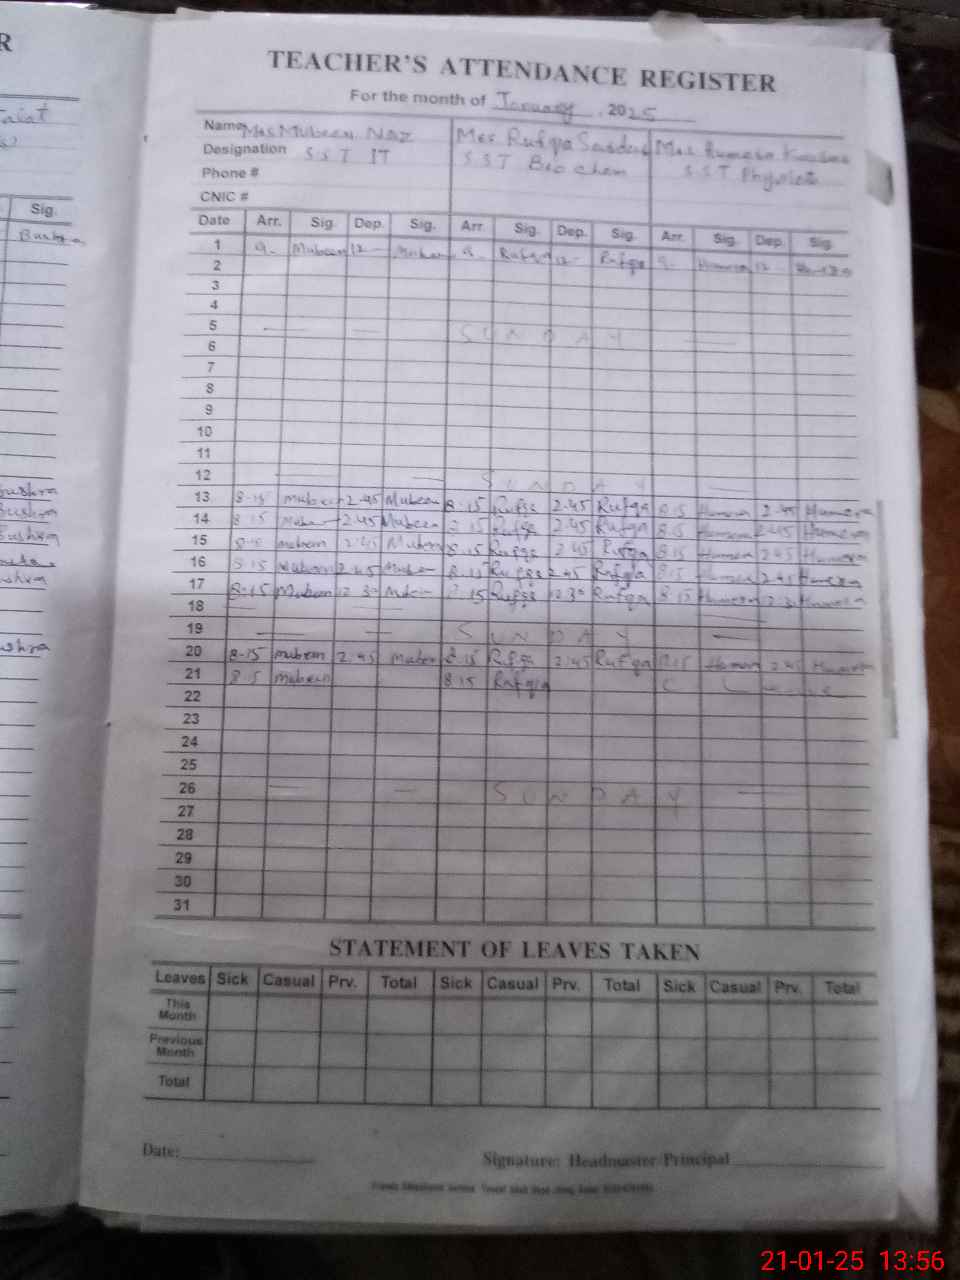 R
Sig.
Bushra
TEACHER'S ATTENDANCE REGISTER
For the month of January, 2025
Name Mrs Mubeen Naz Mrs Rufqa Mrs
Designation S.S.T IT S.S.T Bio Chem S.S.T
Phone #
CNIC #
Date Arr. Sig. Dep. Sig. Arr. Sig. Dep. Sig. Arr. Sig. Dep. Sig.
1 9- Mubeen 12- Mubeen 9- Rufqa 12- Rufqa 9- Humera 12-
2
3
4
5 SUNDAY
6
7
8
9
10
11
12 SUNDAY
13 8-15 Mubeen 2-45 Mubeen 8-15 Rufqa 2-45 Rufqa 8-15 Humera 2-45 Humera
14 8-15 Mubeen 2-45 Mubeen 8-15 Rufqa 2-45 Rufqa 8-15 Humera 2-45 Humera
15 8-15 Mubeen 2-45 Mubeen 8-15 Rufqa 2-45 Rufqa 8-15 Humera 2-45 Humera
16 8-15 Mubeen 2-45 Mubeen 8-15 Rufqa 2-45 Rufqa 8-15 Humera 2-45 Humera
17 8-15 Mubeen 12-30 Mubeen 8-15 Rufqa 12-30 Rufqa 8-15 Humera 12-30 Humera
18
19 SUNDAY
20 8-15 Mubeen 2-45 Mubeen 8-15 Rufqa 2-45 Rufqa 8-15 Humera 2-45 Humera
21 8-15 Mubeen 8-15 Rufqa C L
22
23
24
25
26 SUNDAY
27
28
29
30
31
STATEMENT OF LEAVES TAKEN
Leaves Sick Casual Prv. Total Sick Casual Prv. Total Sick Casual Prv. Total
This Month
Previous Month
Total
Date: Signature: Headmaster/Principal
21-01-25 13:56